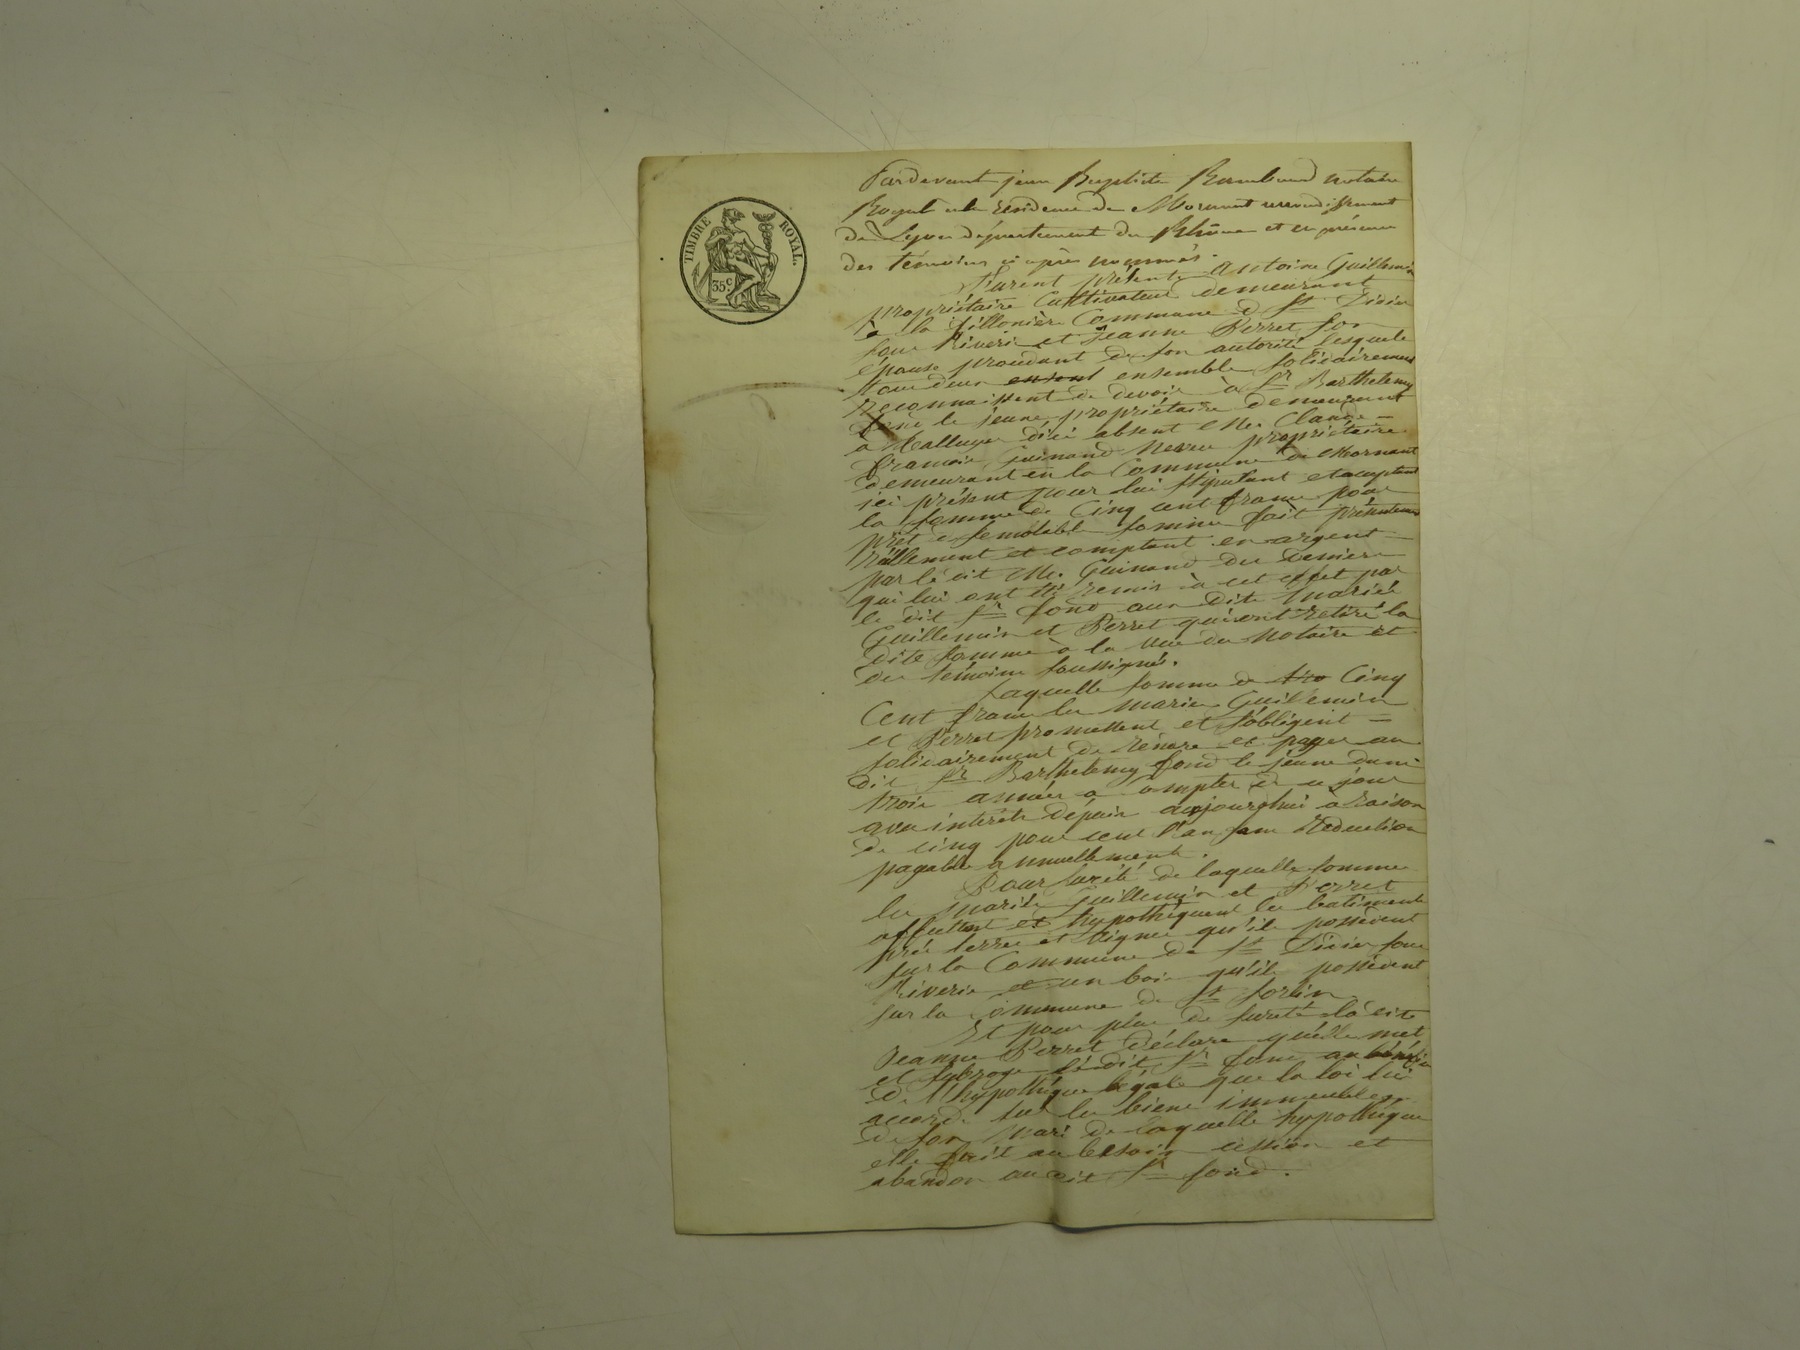 TIMBRE ROYAL.
35c
Pardevant jean Baptiste Rambaud notaire
Royal à la résidence de Mornant arrondissement
de Lyon département du Rhône et en présence
des témoins ci après nommés.
Furent présents Antoine Guillemin
propriétaire Cultivateur demeurant
à la fillonière Commune de St Didier
sous Riverie et Jeanne Perret son
épouse procédant de son autorité lesquels
tous deux ensemble solidairement
reconnaissent devoir à Sr Barthelemy
fond le jeune propriétaire demeurant
à d'ici absent Me. Claude
francois Guinand propriétaire
demeurant en la Commune de Mornant
ici présent pour lui stipulant et acceptant
la somme de Cinq cent francs pour
prêt de semblable somme fait présentement
réellement et comptant en argent
par le dit Me. Guinand des deniers
qui lui ont été remis à cet effet par
le dit Sr fond aux dits mariés
Guillemin et Perret qui ont retiré la
dite somme à la vue du Notaire et
des témoins soussignés.
Laquelle somme de Cinq
Cent francs les mariés Guillemin
et Perret promettent et s'obligent
solidairement de rendre et payer au
dit Sr Barthelemy fond le jeune dans
trois années a compter de ce jour
avec intérêts depuis aujourd'hui à raison
de cinq pour cent l'an sans Réduction
payable annuellement.
Pour sureté de laquelle somme
les mariés Guillemin et Perret
affectent et hypothéquent les batiments
prés terres et vignes qu'ils possèdent
sur la Commune de St Didier sous
Riverie et un bois qu'ils possèdent
sur la Commune de St Sorlin
Et pour plus de sureté la dite
Jeanne Perret déclare qu'elle met
et subroge le dit Sr fond au bénéfice
de l'hypothéque légale que la loi lui
accorde sur les biens immeubles
de son mari de laquelle hypothéque
elle fait au besoin cession et
abandon au dit Sr fond.